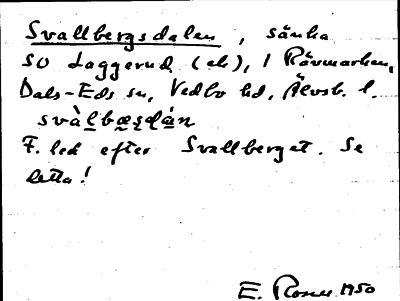 Svallbergsdalen, sänka
SO Laggerud (ek), i Rävmarken,
Dals-Eds sn, Vedbo hd, Älvsb. l.
svàlbæşdán
F. led efter Svallberget. Se
detta!
E. Rosen 1950